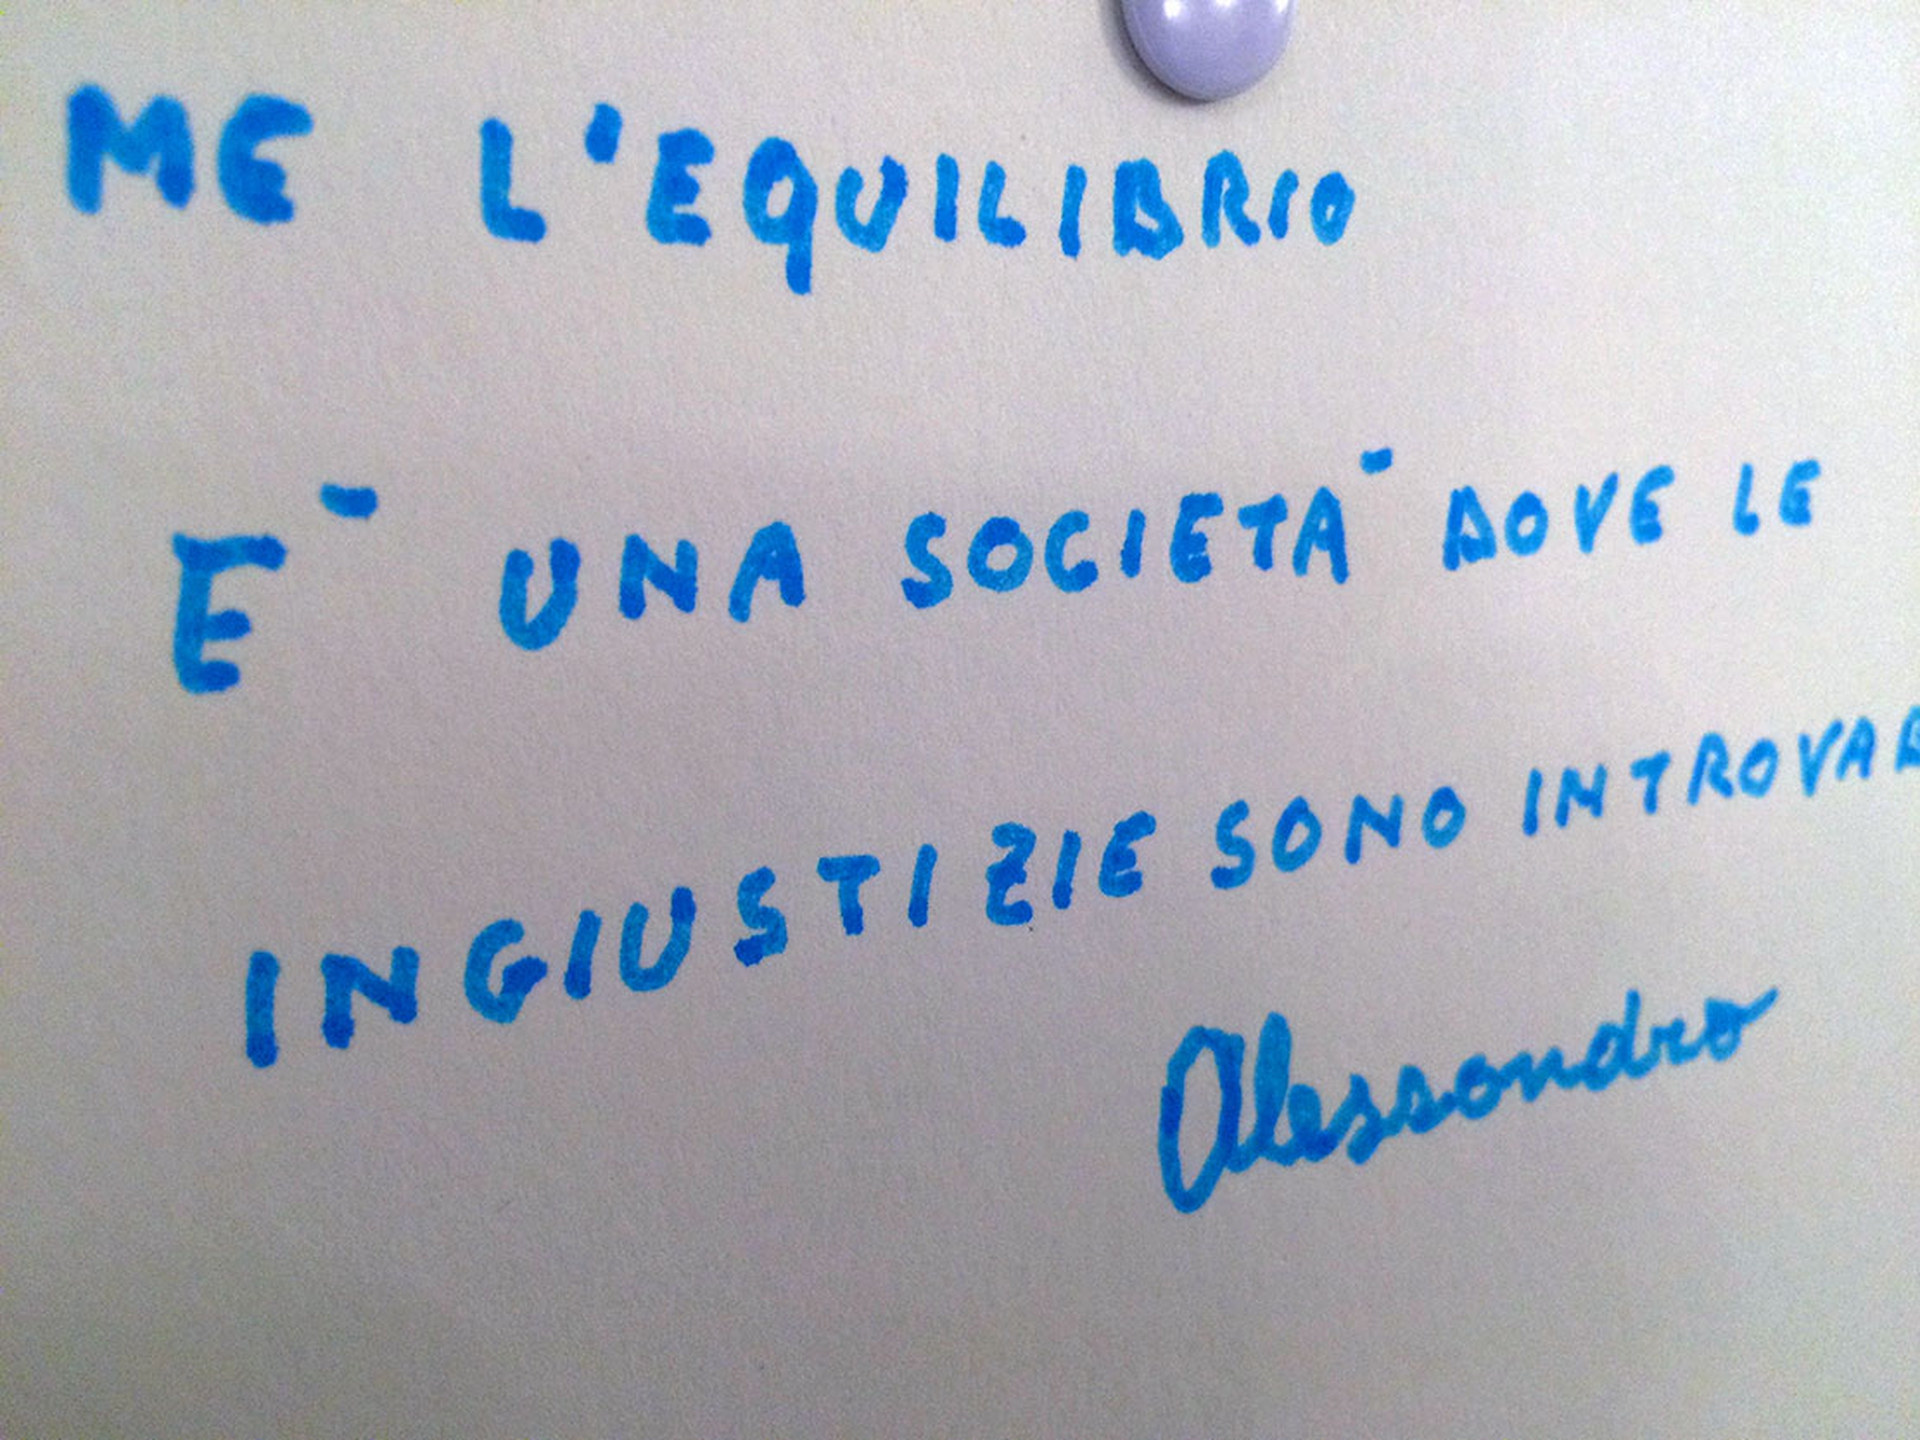 ME L'EQUILIBRIO
E- UNA SOCIETA- DOVE LE
INGIUSTIZIE SONO INTROVAB
Alessandro